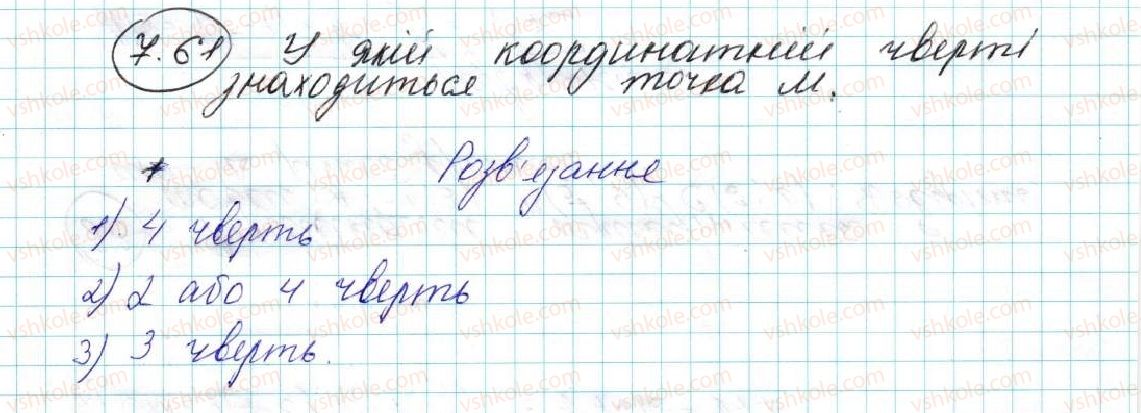 7.61 У якій координатній чверті
знаходиться точка М.
Розв'язання
1) 4 чверть
2) 2 або 4 чверть
3) 3 чверть.